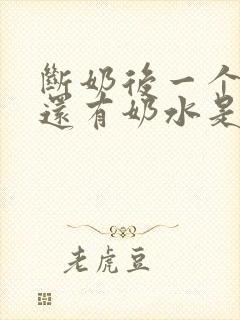 斷奶後一个
還有奶水是
老虎豆